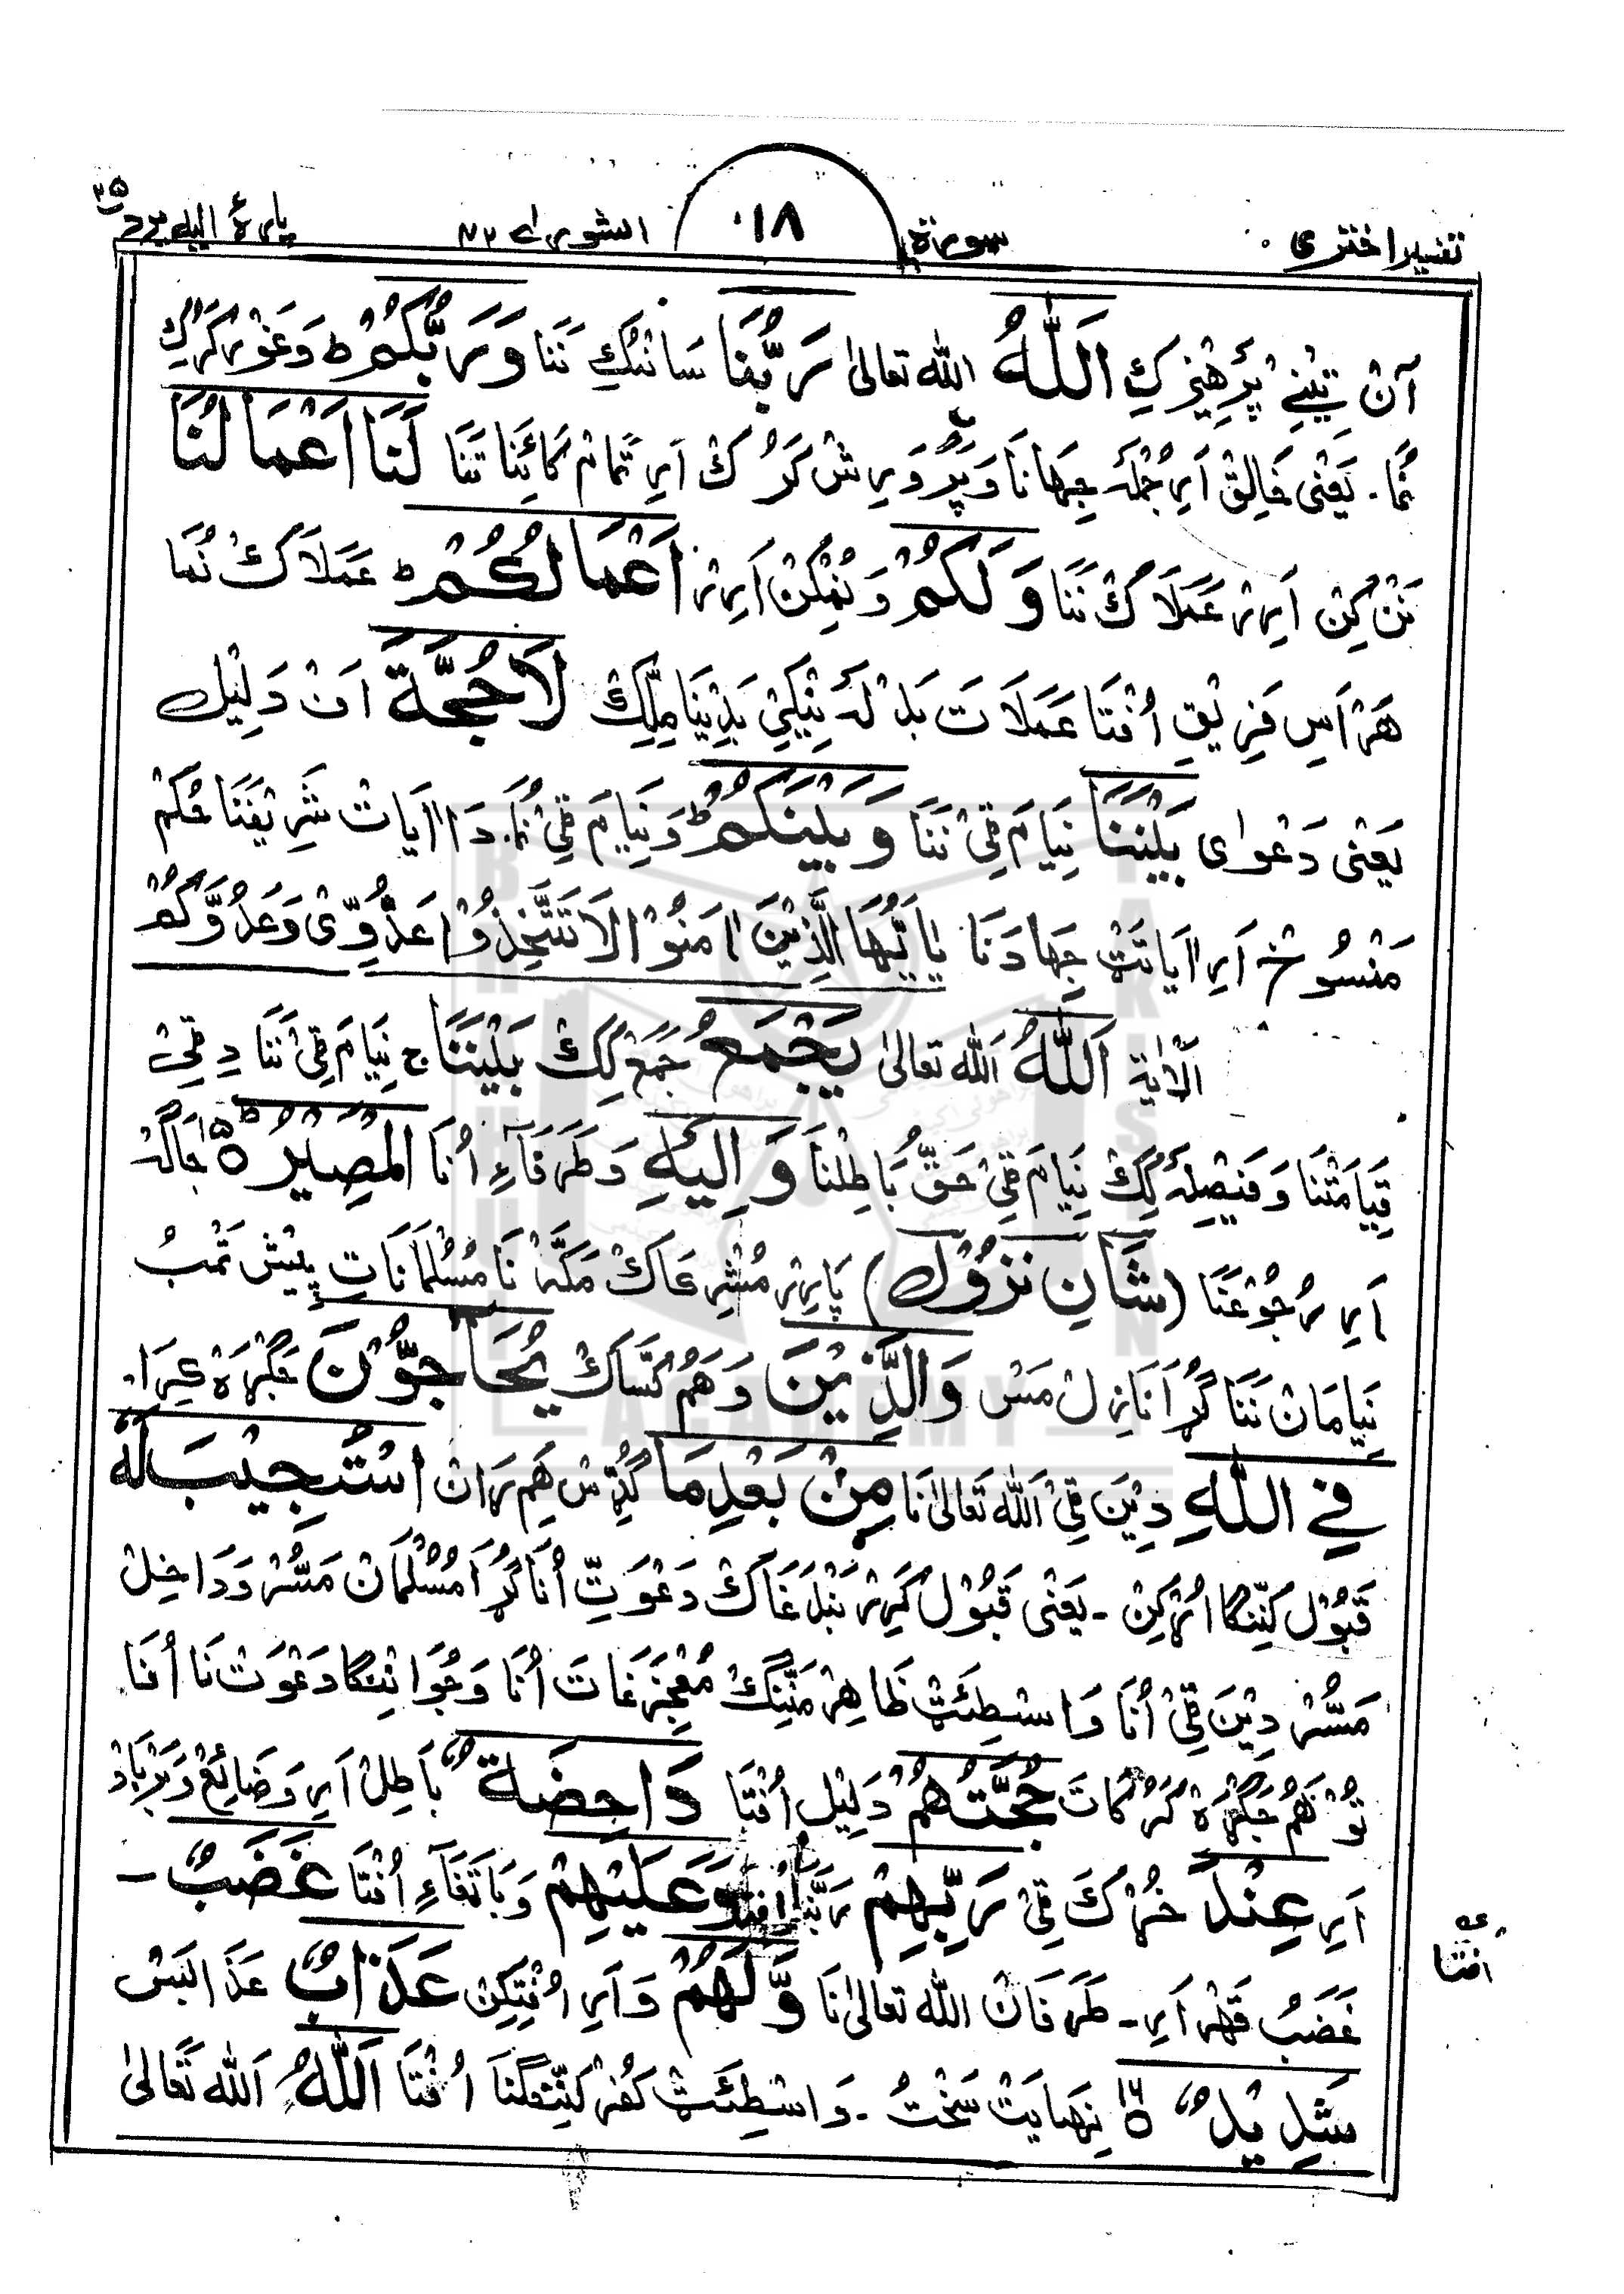 تفسیر اختری سورة ۱۸ الشوریٰ ۴۲ پارۂ الیہ یرد ۲۵
آنْ تینےْ پَرْھیْز کِ اَللّٰهُ الله تعالیٰ رَبُّنَا سَانْنَکِ نَنَا وَرَبُّكُمْ ط وَغَوْر کَرَکِ
نُمَا۔ یَعْنی خَالِقْ اَرِ جُمْلَہ جِهَانَا وَپَرْوَرِشْ کَرُکْ اَرِ تَمَامْ کَائِنَاتَنَا لَنَا اَعْمَالُنَا
نَنْ کِنْ اَرِرْ عَمَلَاکْ نَنَا وَلَكُمْ وَنُمْکِنْ اَرِرْ اَعْمَالُكُمْ ط عَمَلَاکْ نُمَا
هَرْ اَسِ فَرِیْقِ اُفْتَا عَمَلَاتَ بَدْلَہ نِیْکِیْ بَدِیْنَا مِلِّکْ لَاحُجَّةَ اَنْ دَلِیْل
یَعْنی دَعْوٰی بَيْنَنَا نِیَامَ قِیْ نَنَا وَبَيْنَكُمْ ط وَنِیَامَ قِیْ نُمَا۔ دَا اٰیَاتْ شَرِیْفَنَا حُکْم
مَنْسُوْخْ اَرِ اٰیَاتَتْ جِهَادَنَا یٰاَیُّهَا الَّذِیْنَ اٰمَنُوْا لَا تَتَّخِذُوْا عَدُوِّیْ وَعَدُوَّكُمْ
اَلْاٰیة اَللّٰهُ اَلله تعالیٰ يَجْمَعُ جَمَعْ کِکْ بَيْنَنَا ج نِیَامَ قِیْ نَنَا دِ قِیْ
قِیَامَتْنَا وَفَیْصِلَہ کِکْ نِیَامَ قِیْ حَقّ بَاطِلْنَا وَاِلَيْهِ وَطَرَفَآءِ اُنَا الْمَصِيْرُ ۱۵ جَاگَہ
اَرِ رُجُوْعَنَا (شَانِ نُزُوْل) پَارِرْ مُشْرِعَاکْ مَکَّہ نَا مُسْلَمَانَاتِ پِیْش نُمْبُ
نِیَامَانْ نَنَا گُڑَا نَازِلْ مَسْ وَالَّذِيْنَ وَهَمْ کَسَاکْ يُحَاجُّوْنَ جَگْڑَہ کِرَا۔
فِي اللّٰهِ دِیْنَ قِیْ اَلله تَعَالیٰ نَا مِنْ بَعْدِ مَا گُدِّسْ هَمْرَانْ اسْتُجِيْبَ لَهٗ
قَبُوْل کَنِّنْگَا اُرْکِنْ ۔ یَعْنی قَبُوْل کَرِرْ بَنْدَغَاکْ دَعْوَتِ اُنَا گُڑَا مُسْلَمَانْ مَسُّرْ وَدَاخِلْ
مَسُّرْ دِیْنَ قِیْ اُنَا وَاسْطِئَٹْ ظَاهِرْ مَنِّنْگْ مُعْجِزَغَاتَ اُنَا وَجُوَانِنْگَا دَعْوَتْ نَا اُنَا
تُوْ هَمْ جَگْڑَہ کَرُکَاتَ حُجَّتُهُمْ دَلِیْل اُفْتَا دَاحِضَةٌ بَاطِلْ اَرِ وَضَائِعْ وَبَرْبَادْ
اَرِ عِنْدَ خُڑْکَ قِیْ رَبِّهِمْ رَبَّنَا وَعَلَيْهِمْ وَبَاتَغَآءِ اُفْتَا غَضَبٌ ۔
غَضَبُ قَهْر اَرِ۔ طَرَفَانْ الله تعالیٰ نَا وَّلَهُمْ وَاَرِ اُفْتِکِنْ عَذَابٌ عَذَابَسْ
اُفتا
شَدِيْدٌ ۱۶ نِهَایَتْ سَخْتُ ۔ وَاسْطِئَٹْ کُفْر کَنِّنْگَنَا اُفْتَا اَللّٰهُ اَلله تَعَالیٰ